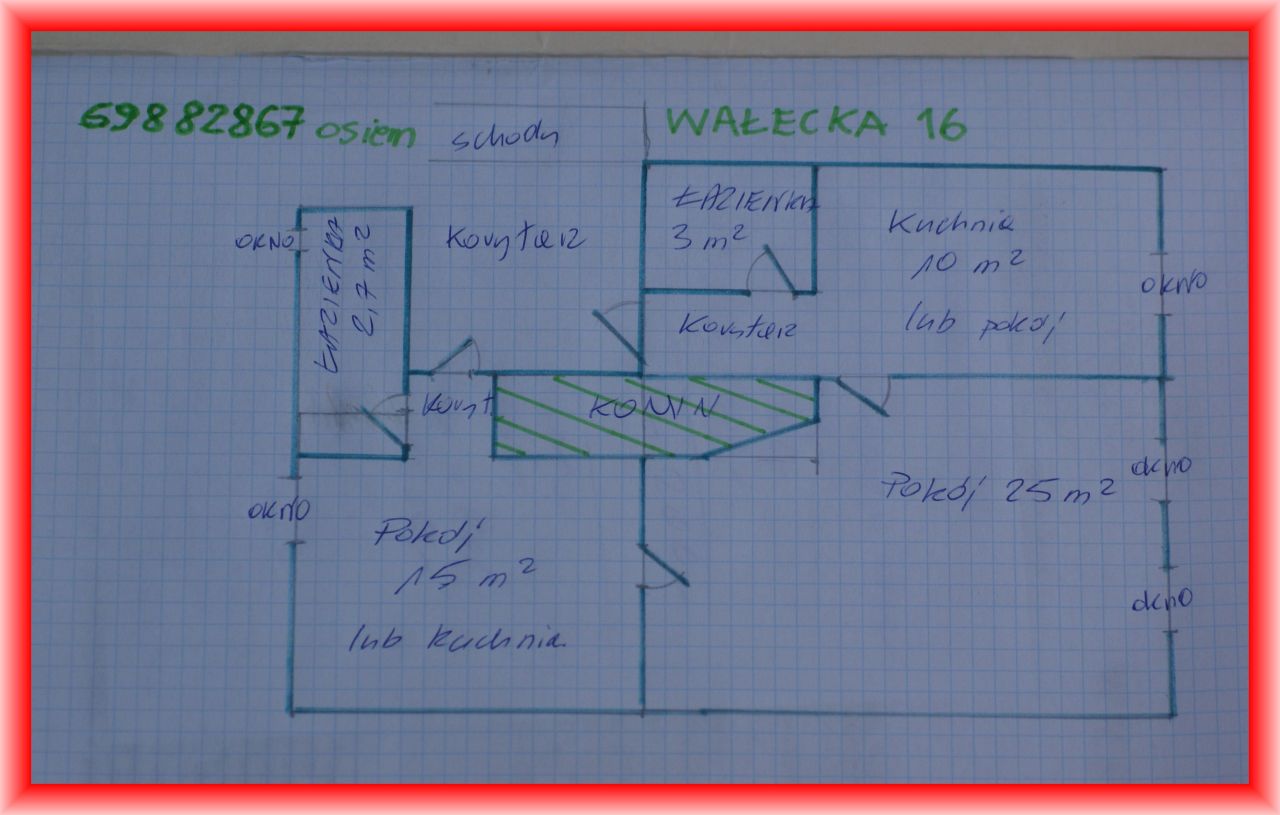 69882867 osiem
schody
WAŁECKA 16
ŁAZIENKA
3 m²
Kuchnia
10 m²
lub pokój
OKNO
OKNO
ŁAZIENKA
2,7 m²
Korytarz
Korytarz
Koryt.
KOMIN
Pokój 25 m²
okno
OKNO
Pokój
15 m²
lub kuchnia
okno